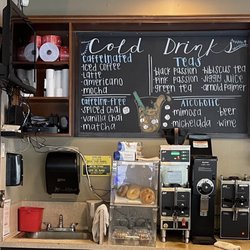 Cold Drink
Caffeinated
iced coffee
latte
americano
mocha
Teas
black passion
hibiscus tea
pink passion
jiggly juice
green tea
arnold palmer
Caffeine-free
spiced chai
vanilla chai
matcha
Alcoholic
mimosa
beer
michelada
wine
Cold